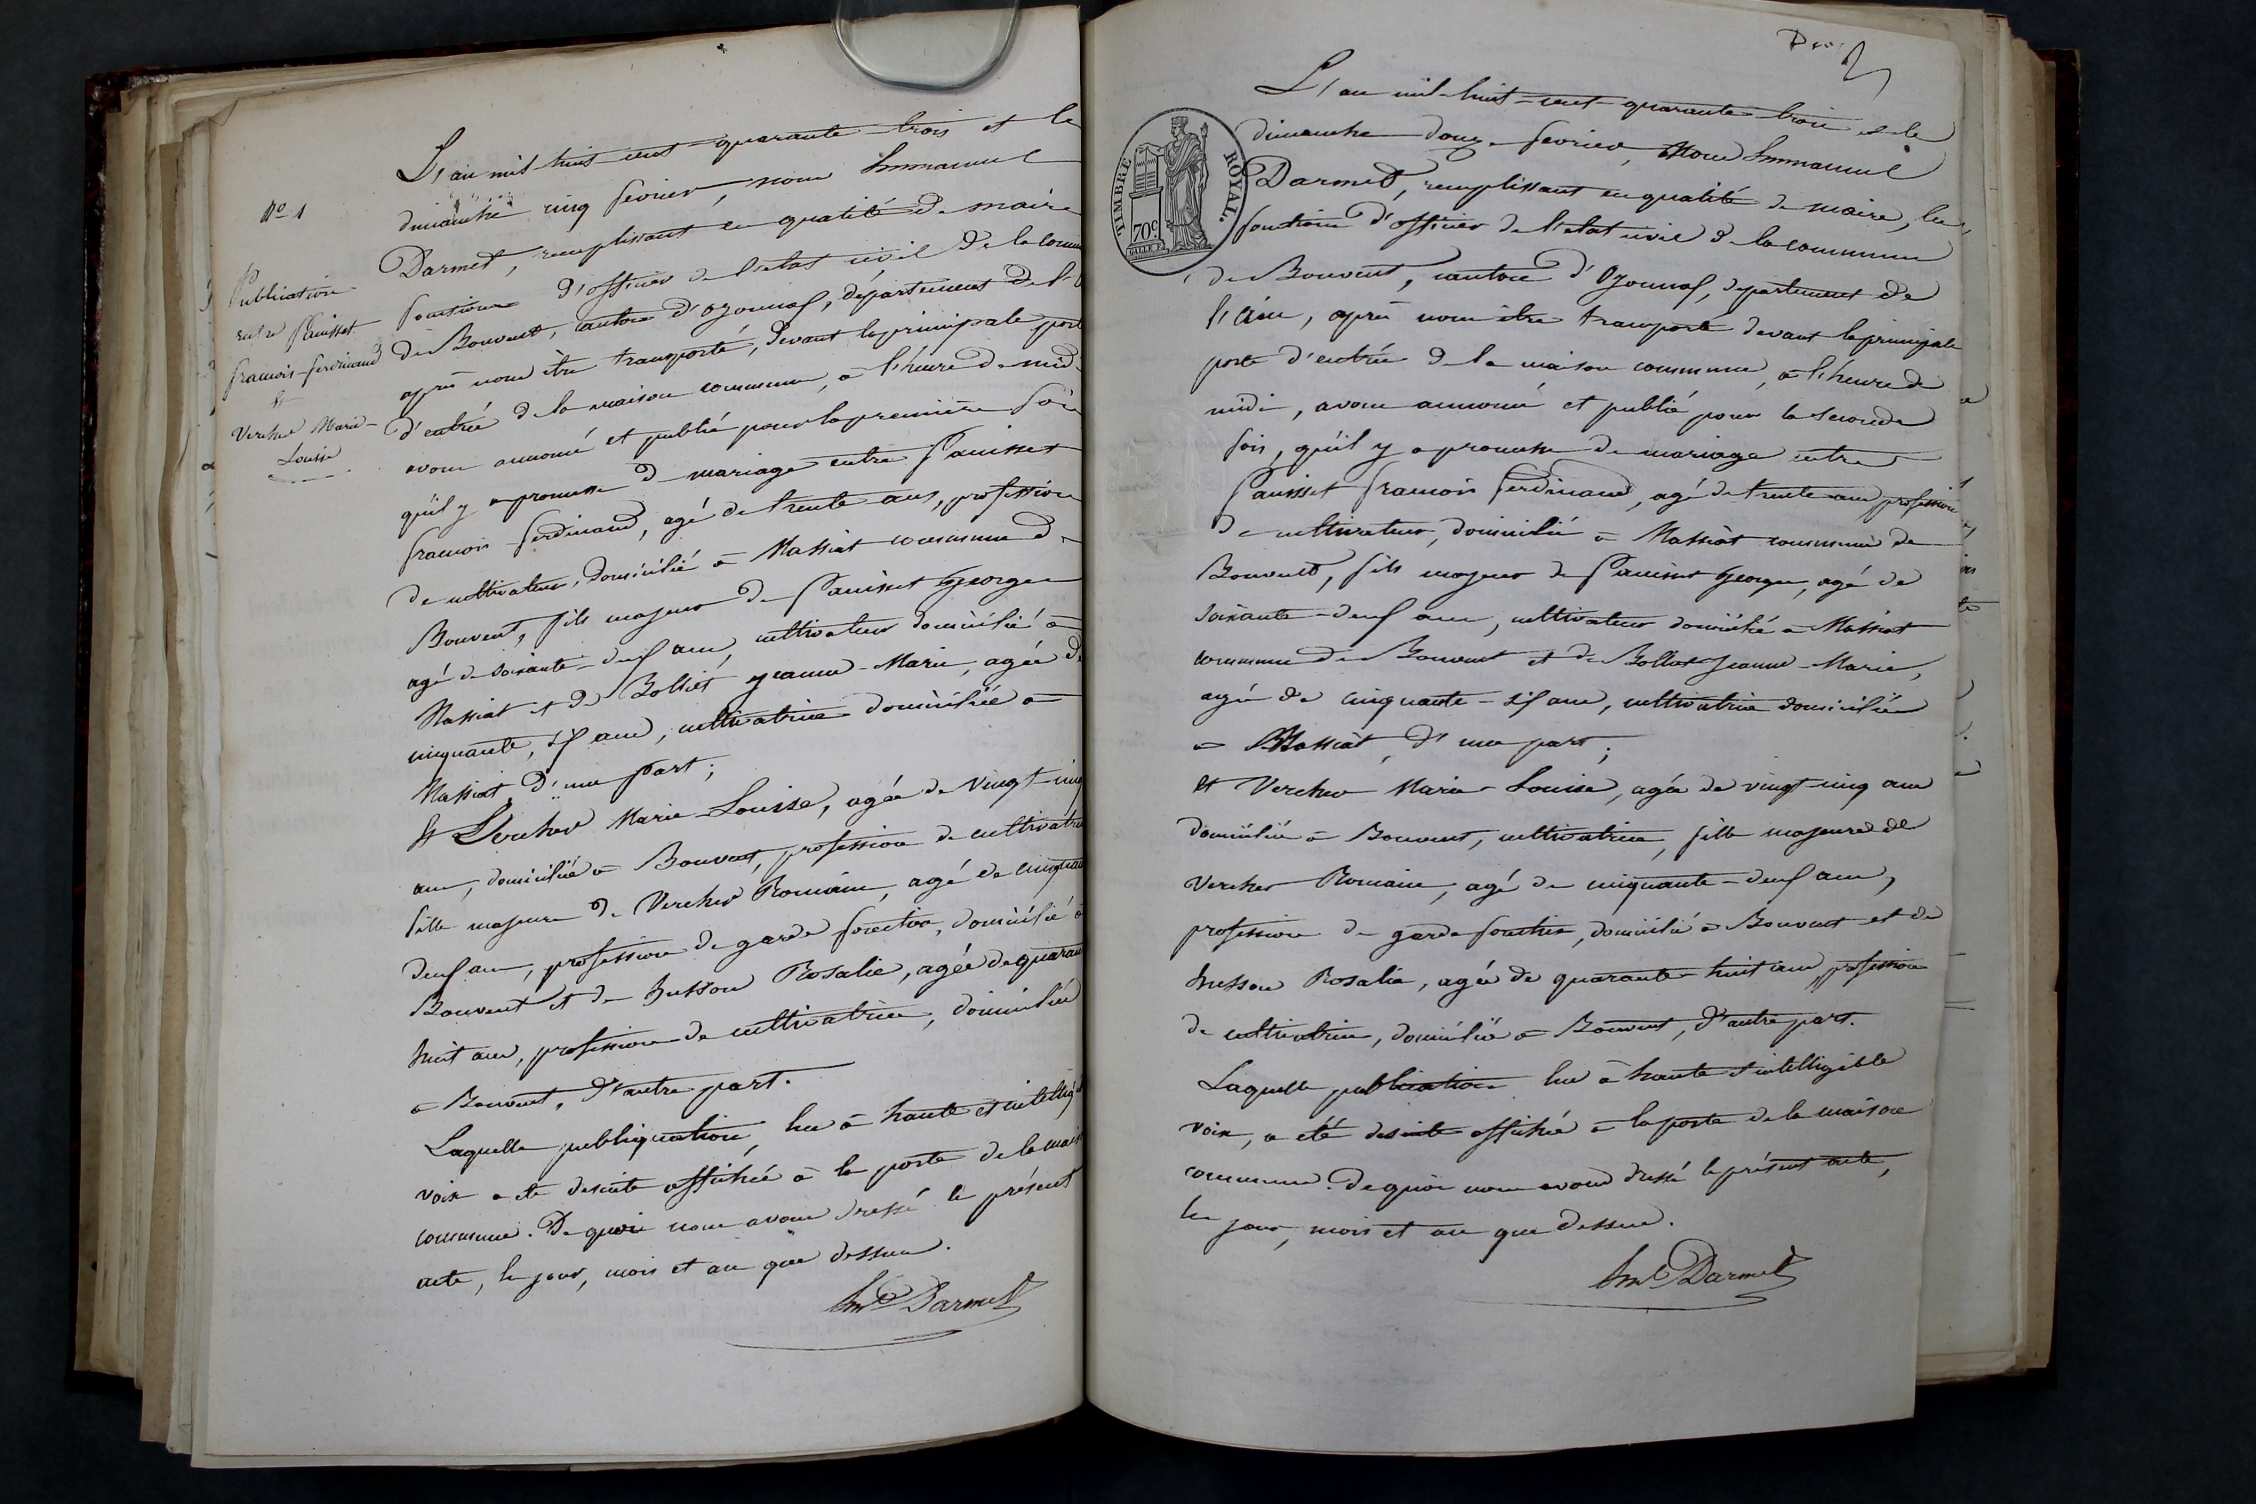 N° 1
Publication
entre Pauisset
francois-ferdinand
Et
Vercher Marie-
Louise
L'an mil-huit-cent-quarante-trois et le
dimanche cinq fevrier, nous Emmanuel
Darmet, remplissant en qualité de maire
fonctions d'officier de l'etat civil de la commu
de Bouvent, canton d'Oyonnax, département de l'
après nous être transporté, devant la principale port
d'entrée de la maison commune, à l'heure de midi
avons annoncé et publié pour la première fois
qu'il y a promesse de mariage entre Pauisset
francois ferdinand, agé de trente ans, profession
de cultivateur, domicilié à Massiat commune de
Bouvent, fils majeur de Pauisset George
agé de soixante-deux ans, cultivateur domicilié à
Massiat et de Bolliet Jeanne-Marie, agée de
cinquante, six ans, cultivatrice domiciliée à
Massiat d'une part;
Et Vercher Marie-Louise, agée de vingt-cinq
ans, domiciliée à Bouvent, profession de cultivatri
fille majeure de Vercher Romain, agé de cinquan
deux ans, profession de garde forestier, domicilié à
Bouvent et de Husson Rosalie, agée de quaran
huit ans, profession de cultivatrice, domiciliée
à Bouvent, d'autre part.
Laquelle publiquation, lue à haute et intelligi
voix a été desuite affichée à la porte de la mais
commune. De quoi nous avons dressé le présent
acte, les jour, mois et an que dessus.
Em^l Darmet
L'an mil-huit-cent-quarante-trois et le
dimanche douze fevrier, Nous Emmanuel
Darmet, remplissant en qualité de maire, les
fonctions d'officier de l'etat civil de la commune
de Bouvent, canton d'Oyonnax, departement de
l'ain, après nous être transporté devant la principale
porte d'entrée de la maison commune, à l'heure de
midi, avons annoncé et publié pour la seconde
fois, qu'il y a promesse de mariage entre
Pauisset francois ferdinand, agé de trente ans profession
de cultivateur, domicilié à Massiat commune de
Bouvent, fils majeur de Pauisset George, agé de
soixante-deux ans, cultivateur domicilié à Massiat
commune de Bouvent et de Bolliet Jeanne-Marie,
agée de cinquante-six ans, cultivatrice domiciliée
à Massiat, d'une part;
Et Vercher Marie-Louise, agée de vingt-cinq ans
domiciliée à Bouvent, cultivatrice, fille majeure de
Vercher Romain, agé de cinquante-deux ans,
profession de garde forestier, domicilié à Bouvent et de
husson Rosalie, agée de quarante-huit ans, profession
de cultivatrice, domiciliée à Bouvent, d'autre part.
Laquelle publication lue à haute et intelligible
voix, a été desuite affichée à la porte de la maison
commune. De quoi nous avons dressé le présent acte,
les jour, mois et an que dessus.
Em^l Darmet
TIMBRE ROYAL.
70^c